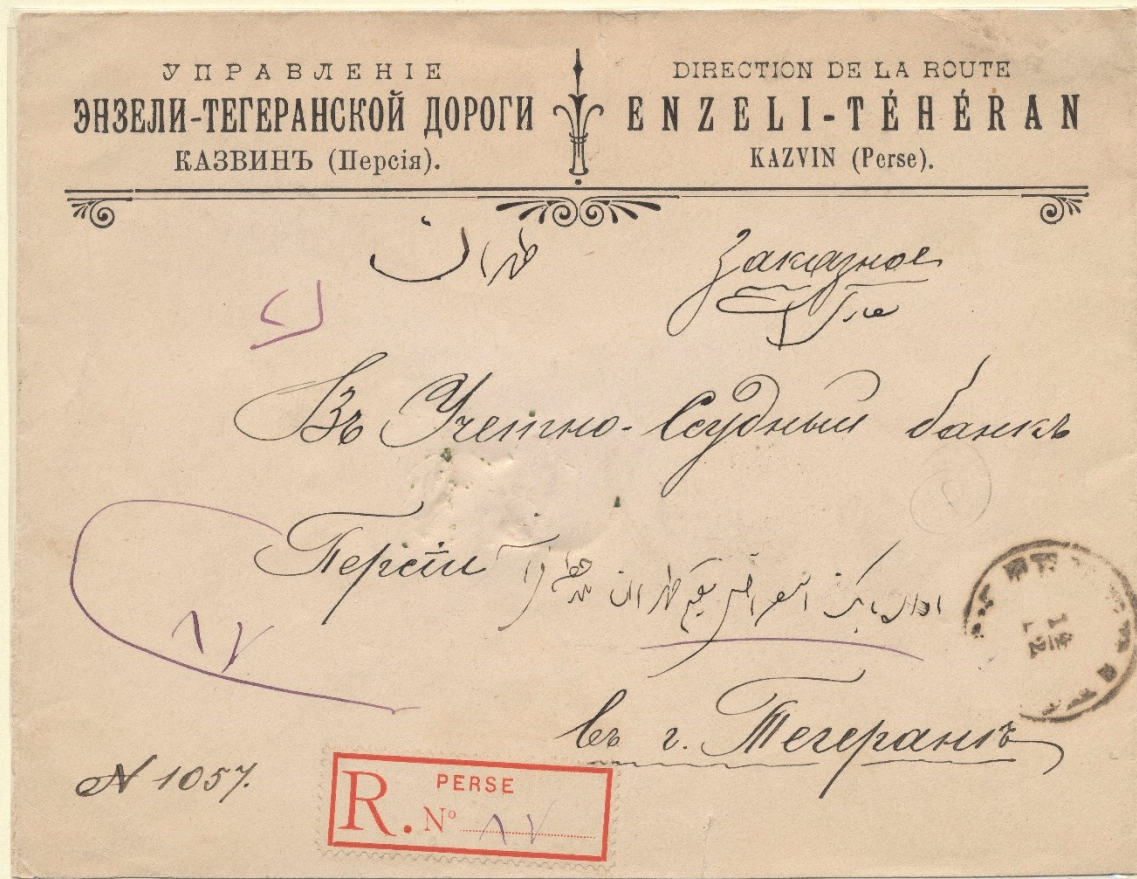 УПРАВЛЕНІЕ
ЭНЗЕЛИ-ТЕГЕРАНСКОЙ ДОРОГИ
КАЗВИНЪ (Персія).
DIRECTION DE LA ROUTE
ENZELI-TÉHÉRAN
KAZVIN (Perse).
طهران
Заказное
Въ Учетно-Ссудный банкъ
Персіи
۸۷
въ г. Тегеранѣ
N 1057.
PERSE
R. Nº ۸۷